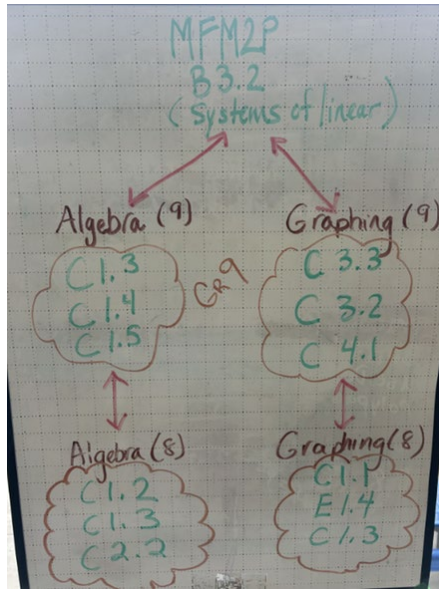 MFM2P
B3.2
(systems of linear)
Algebra (9)
C 1.3
C1.4
C1.5
GR9
Graphing (9)
C 3.3
C 3.2
C 4.1
Algebra (8)
C1.2
C1.3
C2.2
Graphing (8)
C1.1
E1.4
C1.3